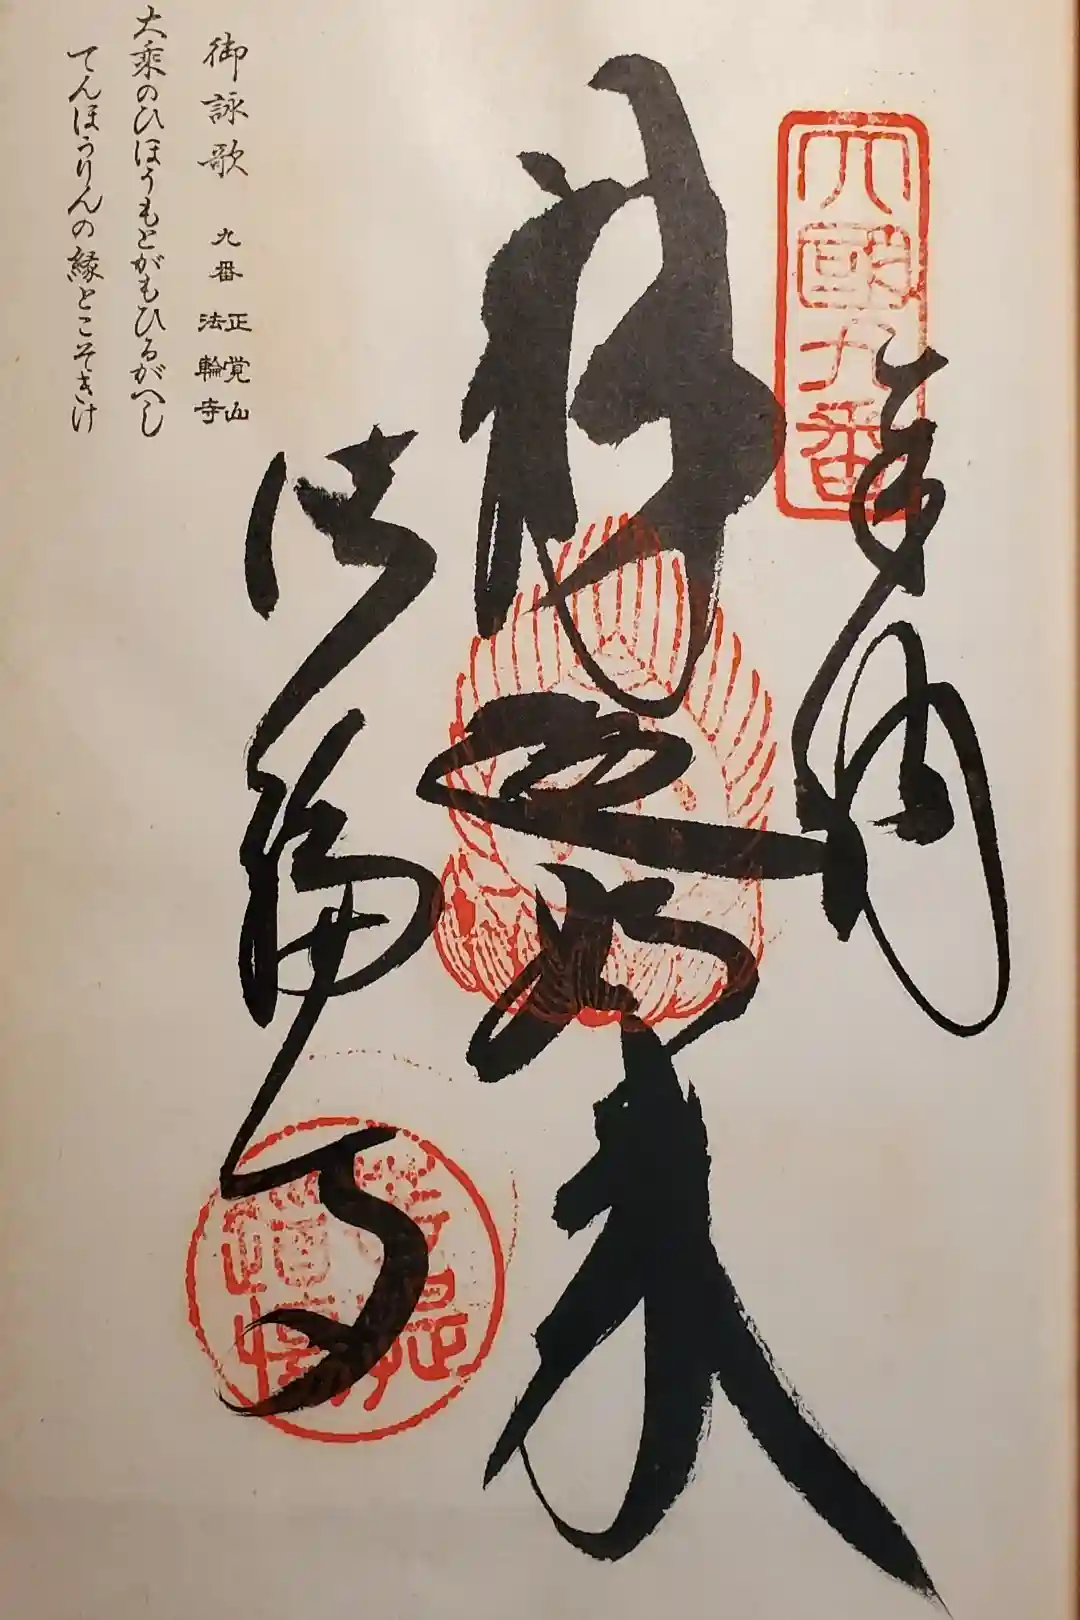 六國九番
奉納
釈迦如来
法輪寺
御詠歌 九番 正覚山
法輪寺
大乗のひほうもとがもひるがへし
てんほうりんの縁とこそきけ